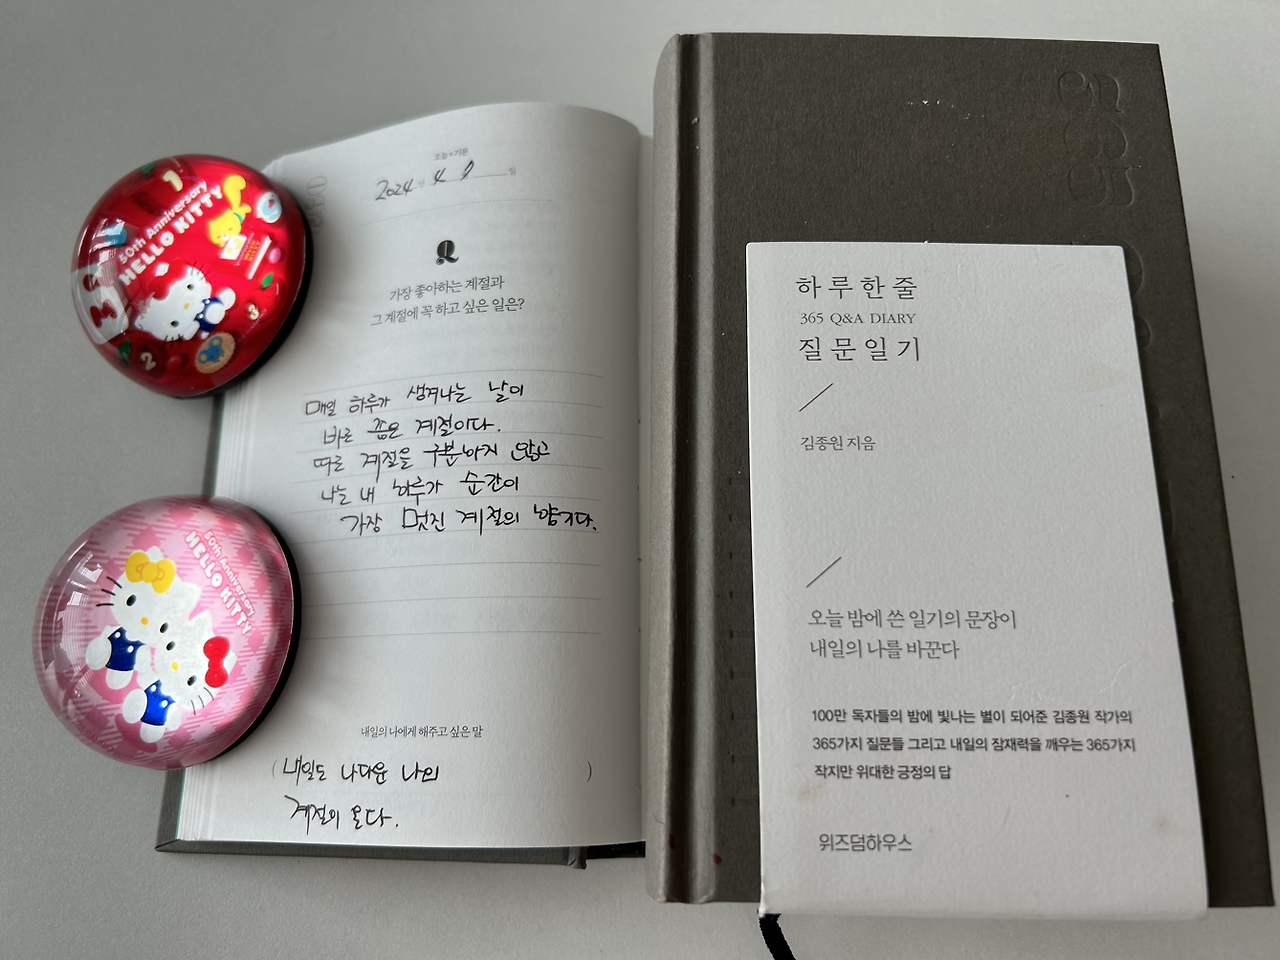 오늘의 기분
2024년 4 9일
Q
가장 좋아하는 계절과
그 계절에 꼭 하고 싶은 일은?
매일 하루가 생겨나는 날이
바로 좋은 계절이다.
따로 계절을 구분하지 않고
나는 내 하루가 순간이
가장 멋진 계절의 향기다.
내일의 나에게 해주고 싶은 말
(내일도 나다운 나의 )
계절이 온다.
1
50th Anniversary
HELLO KITTY
3
2
50th Anniversary
HELLO KITTY
365
하루한줄
365 Q&A DIARY
질문일기
김종원 지음
오늘 밤에 쓴 일기의 문장이
내일의 나를 바꾼다
100만 독자들의 밤에 빛나는 별이 되어준 김종원 작가의
365가지 질문들 그리고 내일의 잠재력을 깨우는 365가지
작지만 위대한 긍정의 답
위즈덤하우스